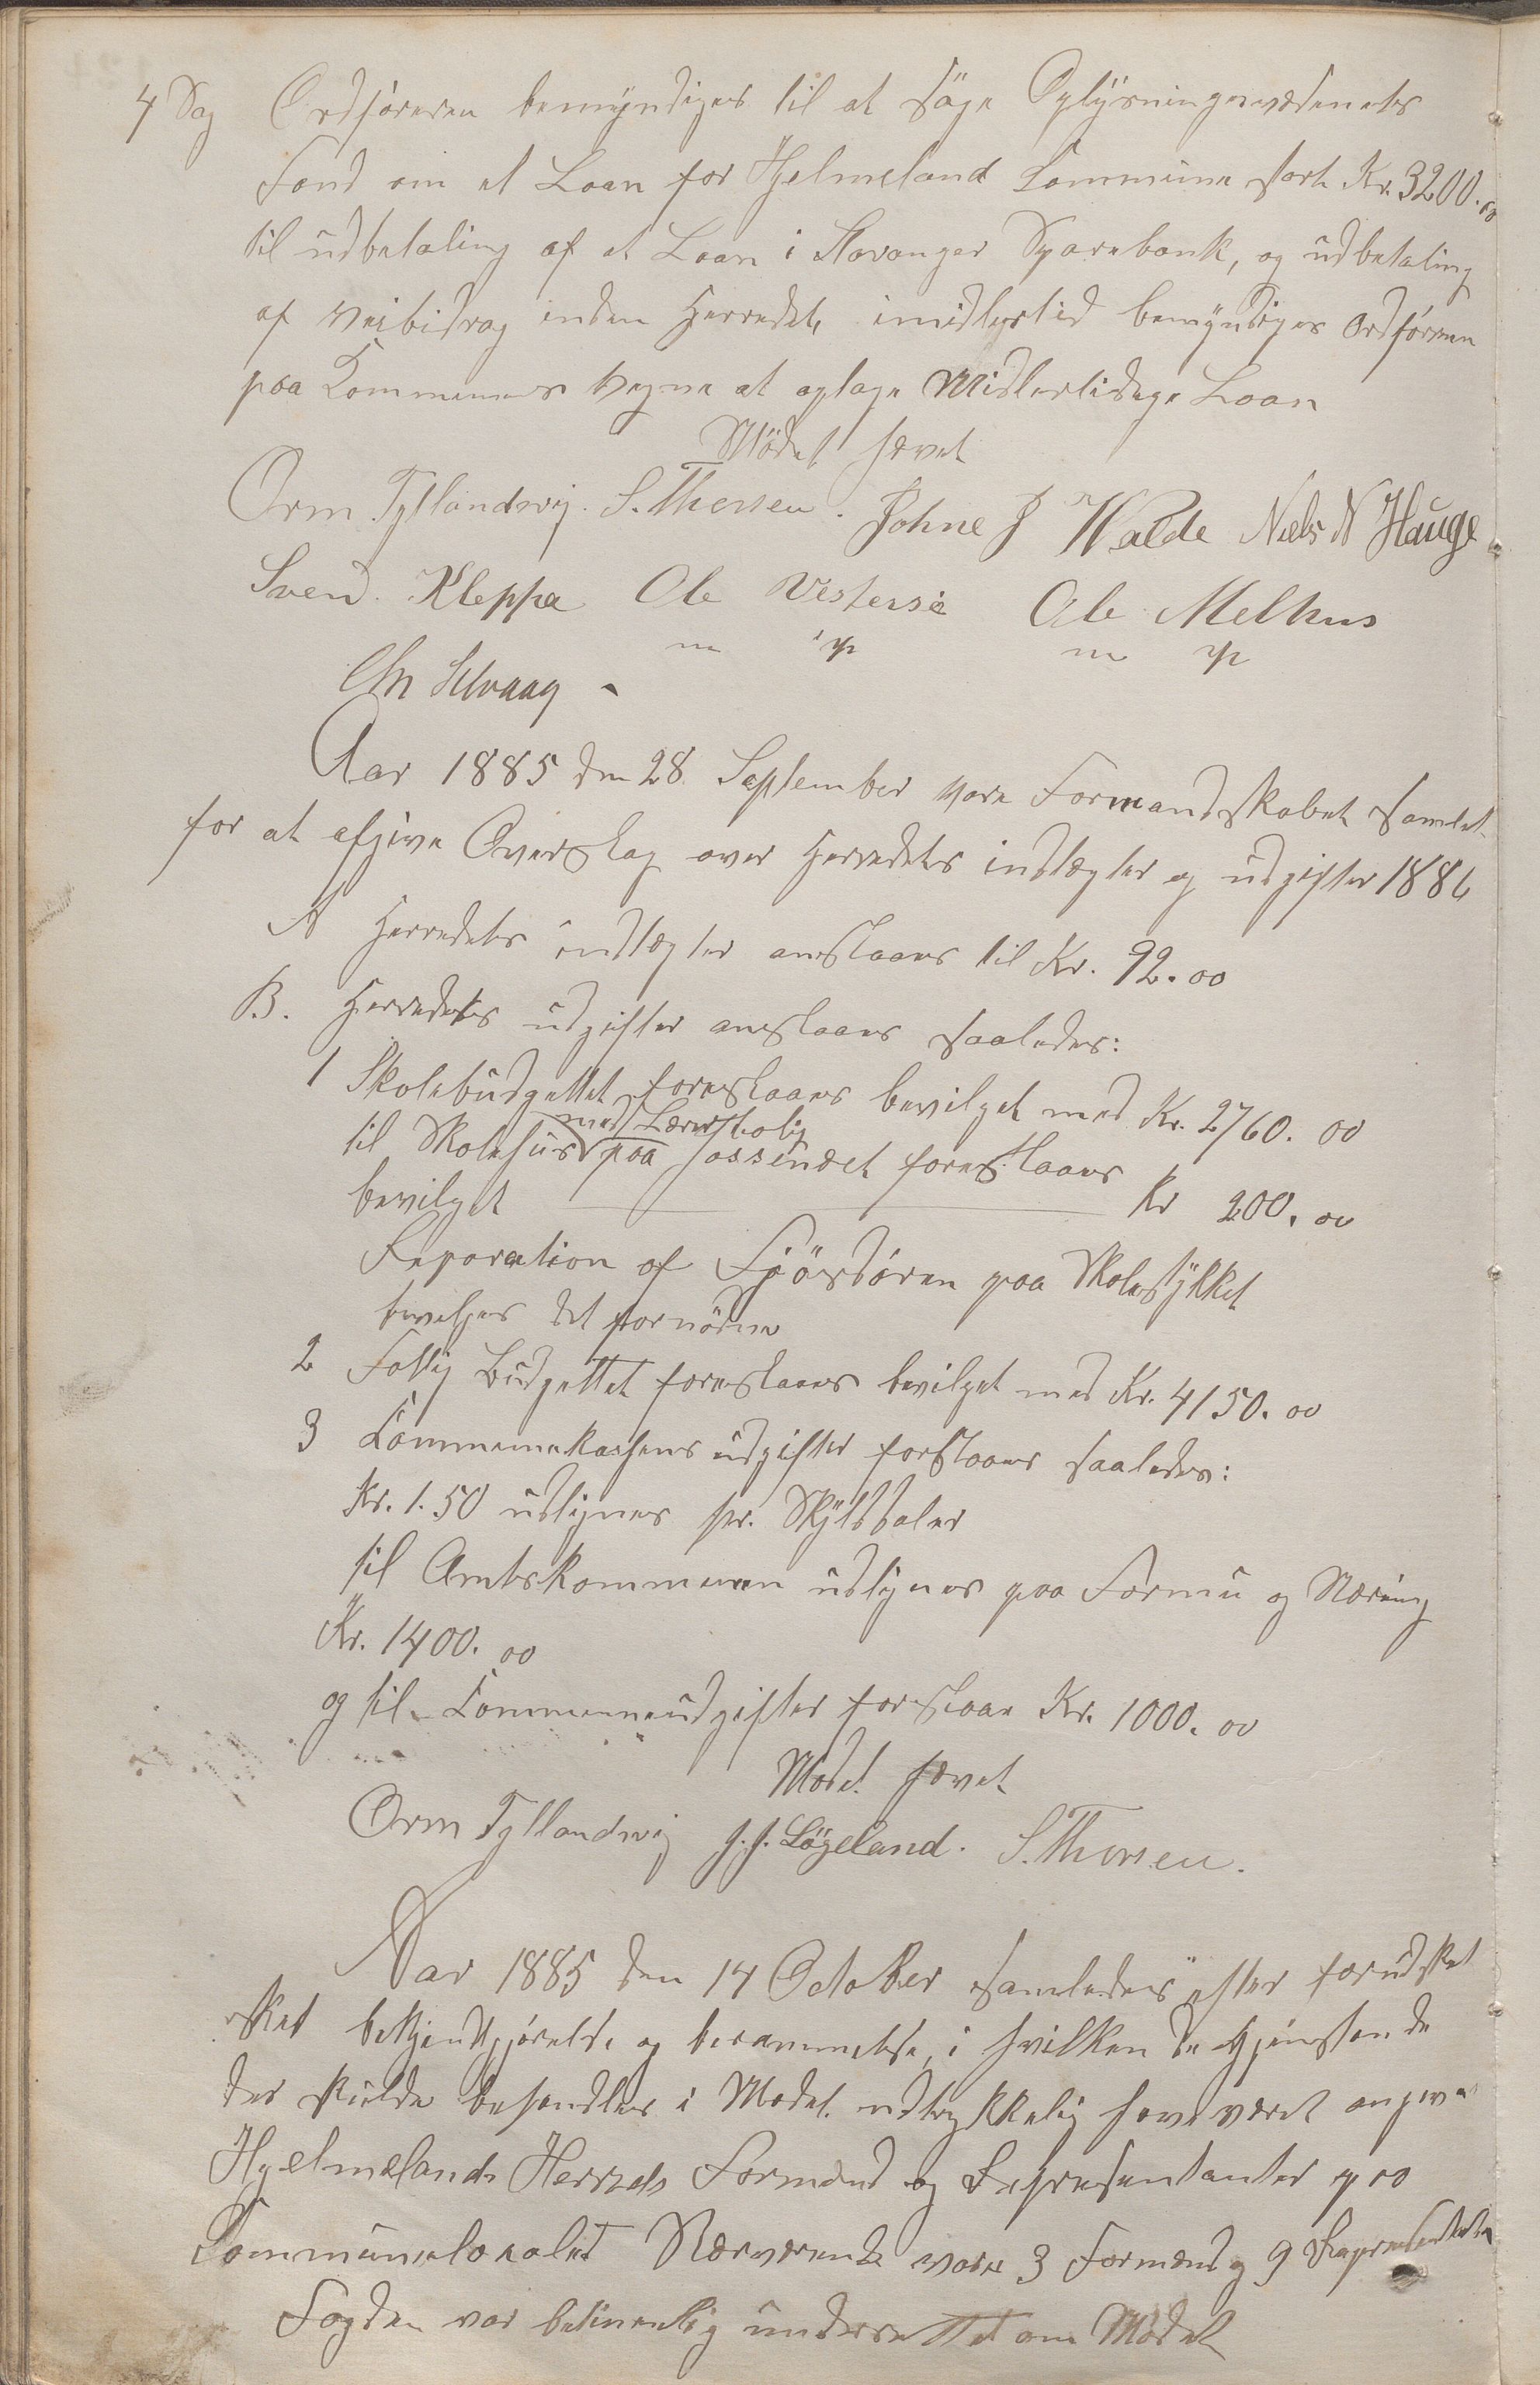 4 Sag Ordføreren bemyndiges til at søge Oplysningsvæsenets
Fond om et Laan for Hjelmeland Commune stort Kr. 3200.00
til udbetaling af et Laan i Stavanger Sparebank, og udbetaling
af Veibidrag inden Herredet, imidlertid bemyndiges Ordføreren
paa Communens Vegne at optage Midlertidige Laan
Mödet hævet
Orm Tyllandsvig. S. Thorsen. Johne J Walde Niels N Hauge
Svend Kleppa Ole Vestersiø Ole Melhus
m p m p
Chr Selvaag
Aar 1885 den 28 September vare Formandskabet samlet
for at afgive Overslag over Herredets indtægter og udgifter 1886
A Herredets indtægter anslaaes til Kr. 92.00
B. Herredets udgifter anslaaes saaledes:
1 Skolebudgettet foreslaaes bevilget med Kr. 2760.00
med Lærerbolig
til Skolehus paa Jøssenæt foreslaaes
bevilget Kr 200.00
Reparation af Fjösdören paa Skolestykket
bevilges det fornødne
2 Fattig Budgettet foreslaaes bevilget med Kr. 4150.00
3 Communekassens udgifter forslaaes saaledes:
Kr. 1.50 udlignes pr. Skylddaler
til Amtskommunen udlignes paa Formu og Næring
Kr. 1400.00
og til Communeudgifter forslaaes Kr. 1000.00
Mødet hævet
Orm Tyllandsvig J. J. Lögeland. S. Thorsen.
Aar 1885 den 14 October samledes efter forud
sket bekjendtgjørelse og berammelse, i hvilken de Gjenstande
der skulde behandles i Mødet udtrykkelig have været angivet
Hjelmelands Herreds Formænd og Representanter paa
Communelocalet Nærværende vare 3 Formænd og 9 Representanter
Fogden var betimelig underrettet om Mødet